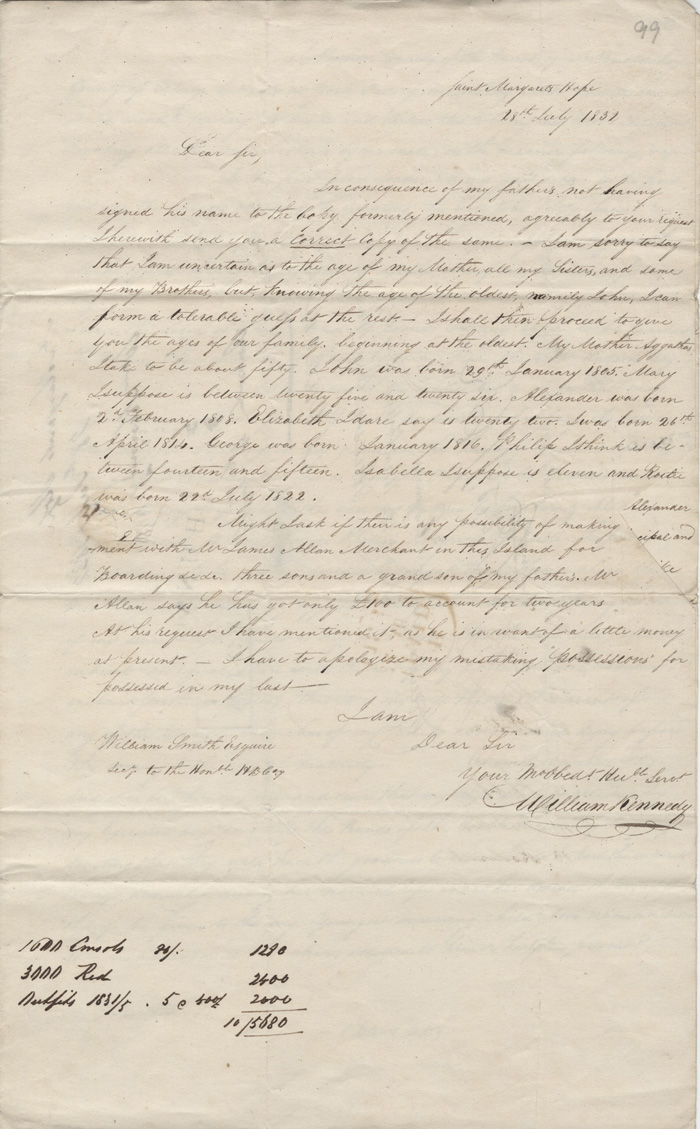 99
Saint Margarets Hope
28th July 1832
Dear Sir,
In consequence of my fathers not having
signed his name to the Copy formerly mentioned, agreeably to your request
I herewith send you a Correct Copy of the same. – I am sorry to say
that I am uncertain as to the age of my Mother, all my Sisters, and some
of my Brothers, but, knowing the age of the oldest, namely John, I can
form a tolerable guess at the rest – I shall then proceed to give
you the ages of our family. beginning at the oldest. My Mother Aggathas
I take to be about fifty. John was born 29th January 1805. Mary
I suppose is between twenty five and twenty six. Alexander was born
2d February 1808. Elizabeth I dare say is twenty two. I was born 26th
April 1814. George was born January 1816. Philip I think is be-
tween fourteen and fifteen. Isabella I suppose is eleven and
was born 22d July 1822.
Alexander
Might I ask if their is any possibility of making
and
ment with Mr James Allan Merchant in this Island for
Boarding &c &c three sons and a grand son of my fathers. Mr
Allan says he has got only £100 to account for two years
At his request I have mentioned it, as he is in want of a little money
at present. – I have to apologize my mistaking 'possessions' for
possessed in my last –
I am
William Smith Esquire
Dear Sir
Secy to the Honble H B Coy
Your Mo obedt Hule Servt
William Kennedy
1600 Consols 80/. 1280
3000 Red 2400
Outfits 1831/5 . 5 @ 400 2000
10/5680